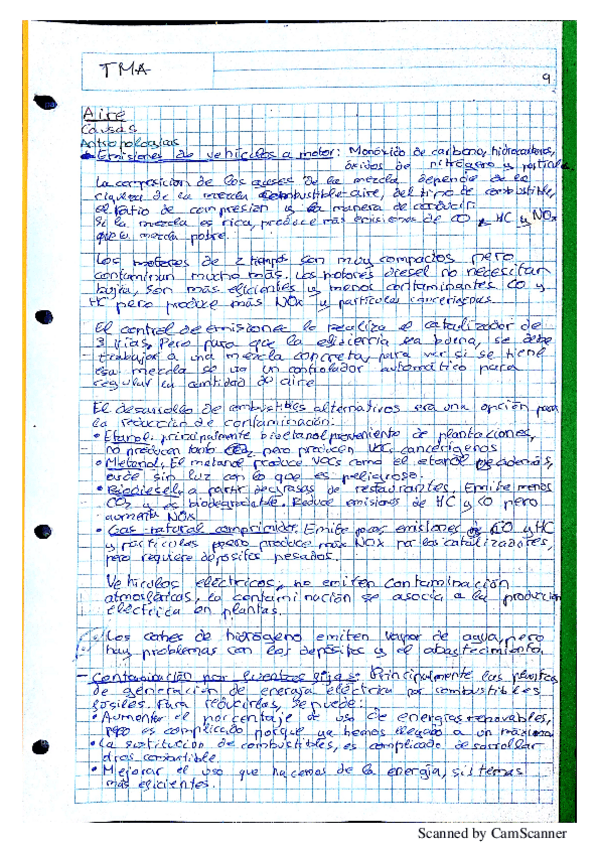 TMA
9
Aire
Causas
Antropologías
Emisiones de vehículos a motor: Monóxido de carbono, hidrocarburos,
óxidos de nitrógeno y partículas
La composición de los gases de la mezcla depende de la
riqueza de la mezcla combustible-aire, del tipo de combustible,
el ratio de compresión y la manera de conducir.
Si la mezcla es rica, produce más emisiones de CO y HC y NOx
que la mezcla pobre.
Los motores de 2 tiempos son muy compactos pero
contaminan mucho más. Los motores diesel no necesitan
bujía, son más eficientes y menos contaminantes CO y
HC pero produce más NOx y partículas cancerígenas.
El control de emisiones lo realiza el catalizador de
3 vías. Pero para que la eficiencia sea buena, se debe
trabajar a una mezcla concreta, para ver si se tiene
esa mezcla se usa un controlador automático para
regular la cantidad de aire
El desarrollo de combustibles alternativos sería una opción para
la reducción de contaminación:
• Etanol: principalmente bioetanol proveniente de plantaciones,
no producen tanto pero producen VOC cancerígenos
• Metanol: El metanol produce VOCs como el etanol además,
arde sin luz con lo que es peligroso.
• Biodiesel: a partir de grasas de restaurantes. Emite menos
CO2 y es biodegradable. Reduce emisiones de HC y CO pero
aumenta NOx
• Gas natural comprimido: Emite pocas emisiones de CO y HC
y partículas pero produce más NOx por los catalizadores,
pero requiere depósitos pesados.
Vehículos eléctricos, no emiten contaminación
atmosférica, la contaminación se asocia a la producción
eléctrica en plantas.
Los coches de hidrógeno emiten vapor de agua, pero
hay problemas con los depósitos y el abastecimiento.
- Contaminación por fuentes fijas: Principalmente las plantas
de generación de energía eléctrica por combustibles
fósiles. Para reducirlas, se puede:
• Aumentar el porcentaje de uso de energías renovables,
pero es complicado porque ya hemos llegado a un máximo
• La sustitución de combustibles, es complicado desarrollar
otros combustible.
• Mejorar el uso que hacemos de la energía, sistemas
más eficientes.
Scanned by CamScanner